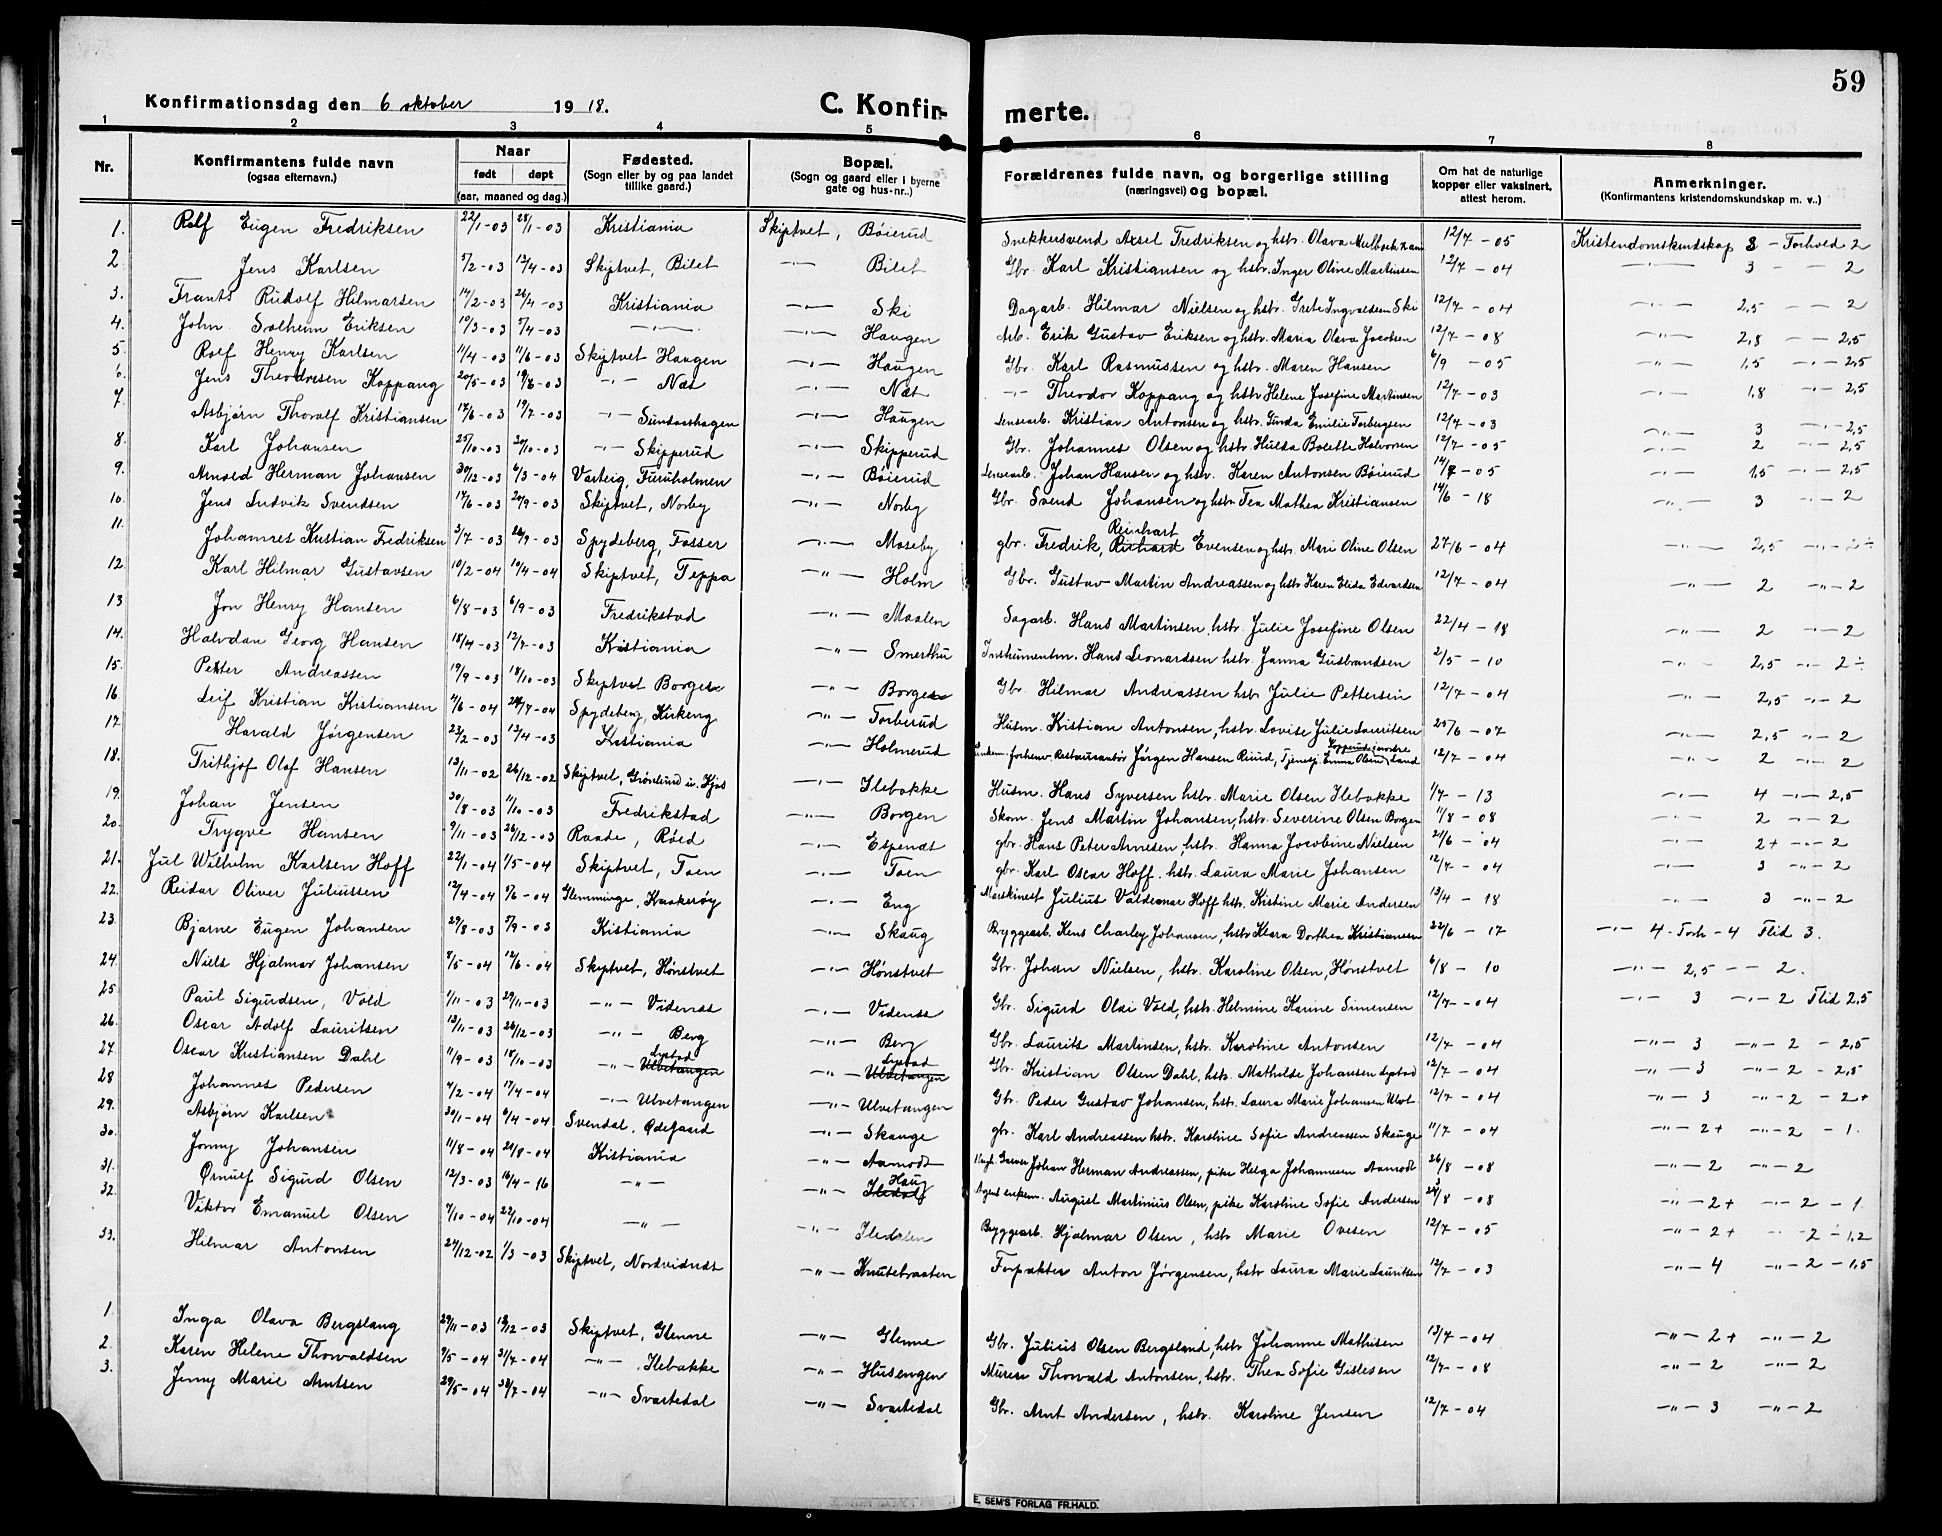 59
Konfirmationsdag den 6 oktober 1918.
C. Konfirmerte.
1 2 3 4 5 6 7 8
Nr. Konfirmantens fulde navn (ogsaa efternavn.) Naar født døpt (aar, maaned og dag.) Fødested. (Sogn eller by og paa landet tillike gaard.) Bopæl. (Sogn og gaard eller i byerne gate og hus-nr..) Forældrenes fulde navn, og borgerlige stilling (næringsvei) og bopæl. Om hat de naturlige kopper eller vaksinert, attest herom. Anmerkninger. (Konfirmantens kristendomskundskap m. v..)
1. Rolf Eugen Fredriksen 22/1-03 28/1-03 Kristiania Skiptvet, Bøierud Snekkersvend Axsel Fredriksen og hstr. Olava 12/7-05 Kristendomskundskap 3 - Forhold 2
2 Jens Karlsen 5/2-03 13/4-03 Skiptvet, Bilet -"- Bilet Gbr. Karl Kristiansen og hstr. Inger Oline Martinsen 12/7-04 -"- 3 - - 2
3. Frants Rudolf Hilmarsen 14/2-03 26/4-03 Kristiania -"- Ski Dagarb. Hilmar Nielsen og hstr. Grete Ingvaldsen Ski 12/7-04 -"- 2,5 - - 2
4. John Solheim Eriksen 10/3-03 5/4-03 -"- -"- Haugen Arb. Erik Gustav Eriksen og hstr. Maria Olava Jacobsen 12/7-08 -"- 2,8 - - 2,5
5. Rolf Henry Karlsen 11/4-03 11/6-03 Skiptvet Haugen -"- Haugen Gbr. Karl Rasmussen og hstr. Maren Hansen 6/9-05 -"- 1,5 -"- 2,5
6. Jens Theodorsen Koppang 20/5-03 19/8-03 -"- Næs -"- Næs -"- Theodor Koppang og hstr Helene Josefine Martinsen 12/7-03 -"- 1,8 -"- 2,5
7. Asbjørn Thoralf Kristiansen 17/6-03 19/7-03 -"- Sundsashagen -"- Haugen Lensearb. Kristian Antonsen og hstr. Gunda Emilie Torbergsen 12/7-03 -"- 3 -"- 2,5
8. Karl Johansen 25/10-03 20/10-03 -"- Skipperud -"- Skipperud Gbr. Johannes Olsen og hstr Hulda Bolette Halvorsen 12/7-05 -"- 2 -"- 2,5
9. Arnold Herman Johansen 30/12-03 6/3-04 Varteig, Furuholmen -"- Bøierud Lensearb. Johan Hansen og hstr. Karen Antonsen Bøierud 14/7-05 -"- 1,5 -"- 2,5
10. Jens Ludvik Svendsen 17/6-03 20/9-03 Skiptvet, Norby -"- Norby Gbr. Svend Johansen og hstr Tea Mathea Kristiansen 14/6-18 -"- 3 -"- 2
11. Johannes Kristian Fredriksen 3/7-03 20/9-03 Spydeberg, Fosser -"- Moseby gbr. Fredrik, Reinhart Richard Evensen og hstr. Mari Oline Olsen 27/6-04 -"- 2,5 -"- 2÷
12. Karl Hilmar Gustavsen 10/2-04 10/4-04 Skiptvet, Teppa -"- Holm Gbr. Gustav Martin Andreassen og hstr Karen Elida Edvardsen 12/7-04 -"- 2 -"- 2
13 Jon Henry Hansen 6/8-03 6/9-03 Fredrikstad -"- Maalen Sagarb. Hans Martinsen, hstr. Julie Josefine Olsen 22/4-18 -"- 2 -"- 2
14. Halvdan Georg Hansen 18/4-03 12/7-03 Kristiania -"- Smerthu Instrumentm. Hans Leonardsen hstr. Janna Gusbandsen 2/5-10 -"- 2,5 -"- 2÷
15. Petter Andreassen 19/9-03 18/10-03 Skiptvet Borge -"- Borge Gbr. Hilmar Andreassen hstr. Julie Pettersen 12/7-04 -"- 2,5 -"- 2
16 Leif Kristian Kristiansen 4/6-04 24/7-04 Spydeberg, Kirkeng -"- Torberud Husm. Kistian Antonsen, hstr. Lovise Julie Lauritsen 25/6-07 -"- 2,5 -"- 2
17. Harald Jørgensen 23/2-03 13/4-03 Kristiania -"- Holmerud forhenv. Restauratør Jørgen Hansen Ruud, Tjenestp. Emma Olsen 12/7-04 -"- 2 -"- 2
18. Frithjof Olaf Hansen 13/11-02 26/12-02 Skiptvet, Grønlund u. Kjos -"- Ilebakke Husm. Hans Syversen hstr. Marie Olsen Ilebakke 1/7-13 -"- 4 -"- 2,5
19. Johan Jensen 30/8-03 11/10-03 Fredrikstad -"- Borgen Skom. Jens Martin Johansen, hstr. Severine Olsen Borgen 11/8-08 -"- 2 -"- 2
20. Trygve Hansen 9/11-03 26/12-03 Raade, Røed -"- Espenæs gbr. Hans Peter Arnesen, hstr. Hanna Jacobine Nielsen 21/6-04 -"- 2+ -"- 2
21. Jul Wilhelm Karlsen Hoff 22/1-04 1/5-04 Skiptvet, Toen -"- Toen gbr. Karl Oscar Hoff, hstr. Laura Marie Johansen 12/7-04 -"- 3 -"- 2
22. Reidar Oliver Juliussen 12/4-04 5/6-04 Glemminge, Kraakerøy -"- Eng Maskinest Julius Valdemar Hoff hstr. Kistine Marie Andersen 13/4-18 -"- 3 -"- 2
23. Bjarne Eugen Johansen 29/8-03 5/9-03 Kistiania -"- Skaug Byggearb. Kens Charley Johansen, hstr Klara Dorthea Kristiansen 22/6-17 -"- 4 - Forh - 4 Flid 3.
24. Niels Hjalmar Johansen 8/5-04 12/6-04 Skiptvet, Hønstvet -"- Hønstvet Gbr. Johan Nielsen, hstr. Karoline Olsen, Hønstvet 6/8-10 -"- 2,5 - - 2.
25 Paul Sigurdsen, Vold 1/11-03 29/11-03 -"- Videnæs -"- Videnæs Gbr. Sigurd Olai Vold, hstr. Helmine Karine Simensen 12/7-04 -"- 3 -"- 2 Flid 2,5
26. Oscar Adolf Lauritsen 13/11-03 26/12-03 -"- Berg -"- Berg Gbr. Laurits Martinsen, hstr. Karoline Antonsen 12/7-04 -"- 3 -"- 2 - 2,5
27. Oscar Kristiansen Dahl 11/9-03 18/10-03 -"- Lystad Ulvetangen -"- Lystad Ulvetangen Gbr. Kristian Olsen Dahl, hstr. Mathilde Johansen Lystad 12/7-04 -"- 3 -"- 2 - 2,5
28 Johannes Pedersen 4/2-04 17/4-04 -"- Ulvetangen -"- Ulvetangen Gbr. Peder Gustav Johansen, hstr. Laura Marie Johansen Ulvet. 12/7-04 -"- 3 -"- 2 - 2+
29. Asbjørn Karlsen 30/1-04 4/4-04 Svendal, Ødegaard -"- Skauge gbr. Karl Andreassen hstr. Karoline Sofie Andreassen Skauge 11/7-04 -"- 2+ -"- 2 - 1.
30. Jonny Johansen 11/8-04 28/8-04 Kistiania -"- Aamodt Johan Herman Andreassen, pike Helga Johannesen Aamodt 26/8-08 -"- 2 -"- 2
31. Ørnulf Sigurd Olsen 12/3-03 16/4-16 -"- -"- Haug Iledal Agent enkem. August Martinius Olsen, pike Karoline Sofie Andersen 24/8-08 -"- 2+ -"- 2 - 1
32. Viktor Emanuel Olsen 7/10-04 22/10-04 -"- -"- Iledalen Byggearb. Hjalmar Olsen, hstr Marie Ovesen 12/7-05 -"- 2+ -"- 2 ÷ 1,2
33. Hilmar Antonsen 24/12-02 1/3-03 Skiptvet, Nordvidnæs -"- Knutebraaten Forpakter Anton Jørgensen, hstr Laura Marie Lauritsen 12/7-03 -"- 4 -"- 2 - 1,5
1. Inga Olava Bergslang 29/11-03 13/12-03 Skiptvet, Glenne -"- Glenne Gbr. Julius Olsen Bergsland, hstr Johanne Mathisen 13/7-04 -"- 2+ -"- 2
2. Karen Helene Thorvaldsen 9/5-04 31/7-04 -"- Ilebakke -"- Husengen Murer Thorvald Antonsen, hstr. Thea Sofie Gislesen 12/7-08 -"- 2 -"- 2
3. Jenny Marie Arntsen 29/5-04 31/7-04 -"- Svartedal -"- Svartedal Gbr. Arnt Andersen, hstr. Karoline Jensen 12/7-04 -"- 3 -"- 2
E. SEM'S FORLAG FR.HALD.